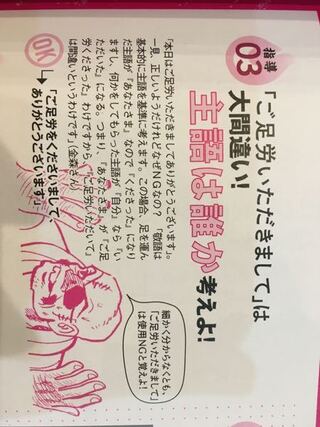 指導
03
「ご足労いただきまして」は
大間違い!
主語は誰か考えよ!
「本日はご足労いただきましてありがとうございます」。
一見、正しいようだけれどなぜNGなの?「敬語は
基本的に主語を基準に考えます。この場合、足を運ん
だ主語が『あなたさま』なので『くださった』になり
ますし、何かをしてもらった主語が『自分』なら『い
ただいた』になる。つまり、『あなたさま』が『ご足
労くださった』わけですから、『ご足労いただいて』
は間違いというわけです」(金森さん)
OK
「ご足労をくださいまして、
ありがとうございます」
細かく分からなくとも、
「ご足労いただきまして」
は使用NGと覚えよ!